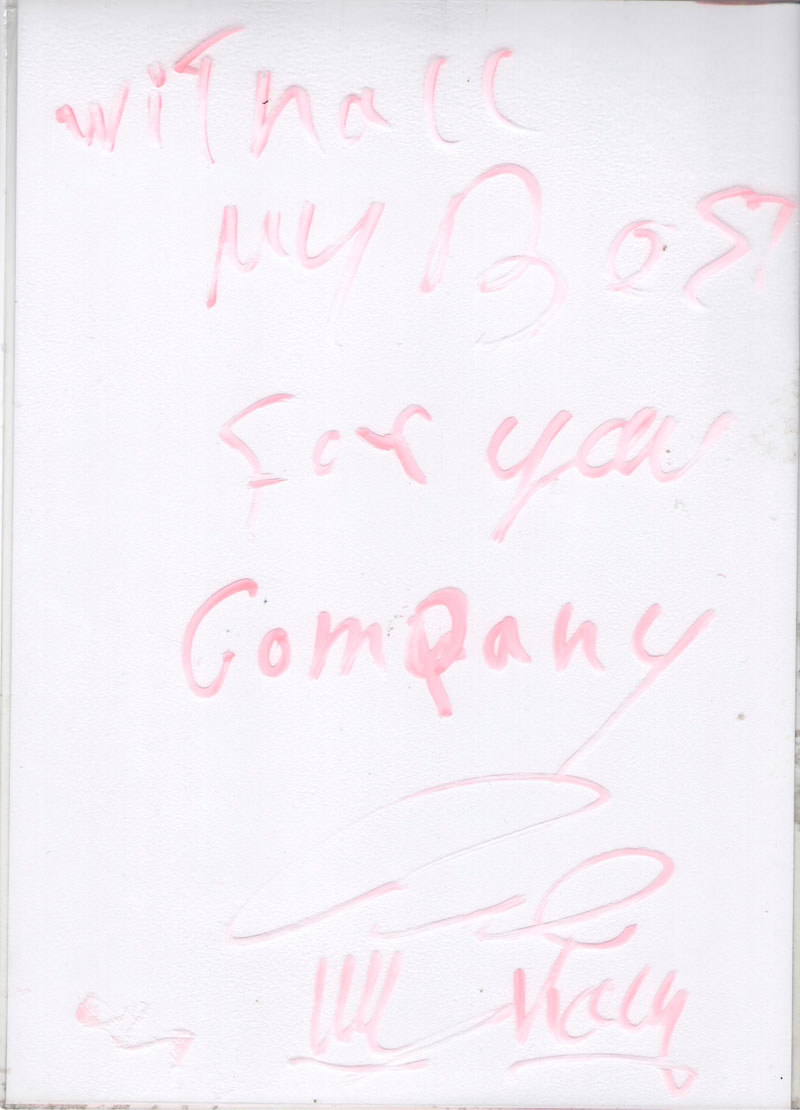 with all
My Bost
For you
Company